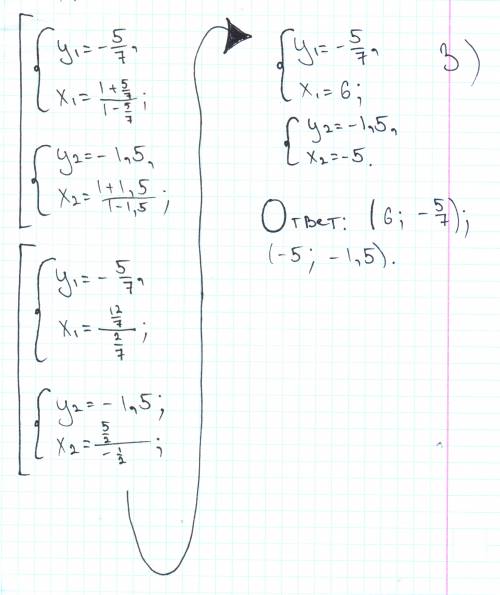 y₁ = -5/7,
x₁ = (1+5/7)/(1-5/7);
y₂ = -1,5,
x₂ = (1+1,5)/(1-1,5);
y₁ = -5/7,
x₁ = (12/7)/(2/7);
y₂ = -1,5;
x₂ = (5/2)/(-1/2);
y₁ = -5/7,
x₁ = 6;
3)
y₂ = -1,5,
x₂ = -5.
Ответ: (6; -5/7);
(-5; -1,5).